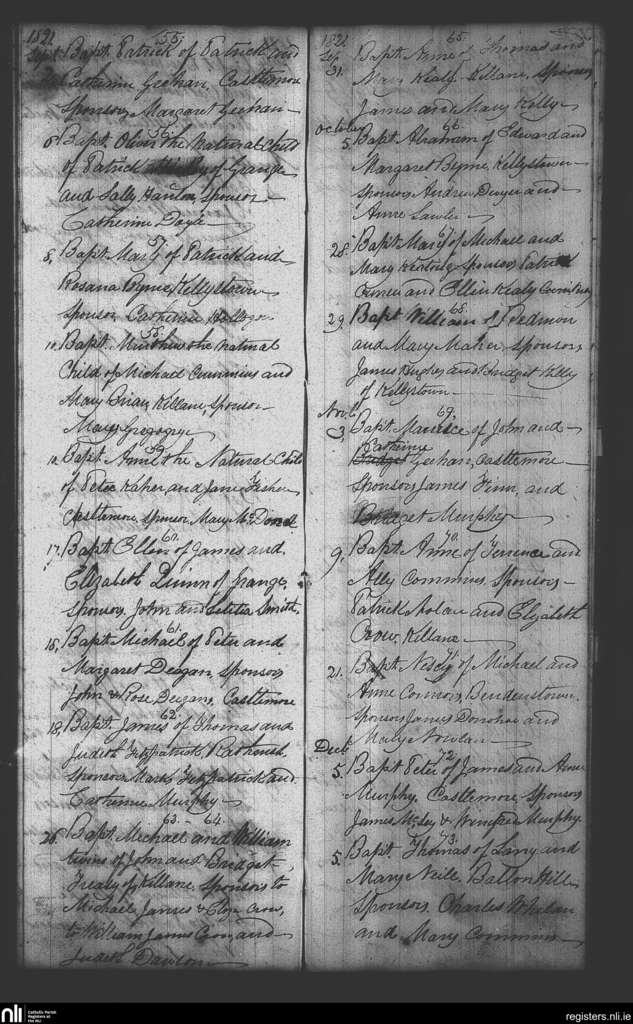 1821
55.
Sept. Bapt. Patrick of Patrick and
Catherine Geehan, Castlemore
Sponsor, Margaret Geehan
56.
Bapt. Oliver the Natural Child
of Patrick of Grange
and Sally Hanlon, Sponsor
Catherine
57.
8. Bapt. Mary of Patrick and
Rosana Byrne, Kellystown
Sponsor, Catherine
58.
Bapt. the Natural
Child of Michael Cummins and
Mary Killane, Sponsor
Mary Gregory
59.
Bapt. Anne the Natural Child
of Peter Kaher, and Jane Fisher
Castlemore, Sponsor Mary
60.
17. Bapt. Ellen of James and
Elizabeth Quinn of Grange,
Sponsors, John and Letitia Smith.
61.
18, Bapt. Michael of Peter and
Margaret Deegan, Sponsors
John & Rose Deegan, Castlemore
62.
18, Bapt. James of Thomas and
Judeth Fitzpatrick, Rathmore
Sponsors Mark Fitzpatrick and
Catherine Murphy
63. - 64.
Bapt. Michael and William
twins of John and Bridget
of Killane, Sponsors to
Michael James & Crow,
to William James Crow and
Judeth Dawson
1821
65.
Sep. Bapt. Anne of Thomas and
31. Mary Kealy Killane, Sponsors
James and Mary Kelly
October
66.
5. Bapt. Abraham of Edward and
Margaret Byrne, Kellystown
Sponsors, Andrew Dwyer and
Anne Lawler
67.
28. Bapt. Mary of Michael and
Mary Sponsors, Patrick
and Ellin Kealy
29. Bapt. William of Redmon
and Mary Maher, Sponsors,
James Hughes and Bridget Kelly
of Kellystown
Nov.
69.
3. Bapt. Maurice of John and
Catherine
Geehan, Castlemore
Sponsors James Finn, and
Bridget Murphy
70.
9. Bapt. Anne of Terrence and
Ally Commins, Sponsors
Patrick Nolan and Elizabeth
Crow, Killane
71.
21. Bapt. of Michael and
Anne Connors, Bendenstown.
Sponsors, James Donohoe and
Mary Nowlan
Decb.
72.
5. Bapt. Peter of James and Anne
Murphy, Castlemore, Sponsors
James & Winefred Murphy.
73.
5. Bapt. Thomas of Larry and
Mary Neill, Balton Hill
Sponsors, Charles Whelan
and Mary Commins
nli
Catholic Parish
Registers at
the NLI
registers.nli.ie